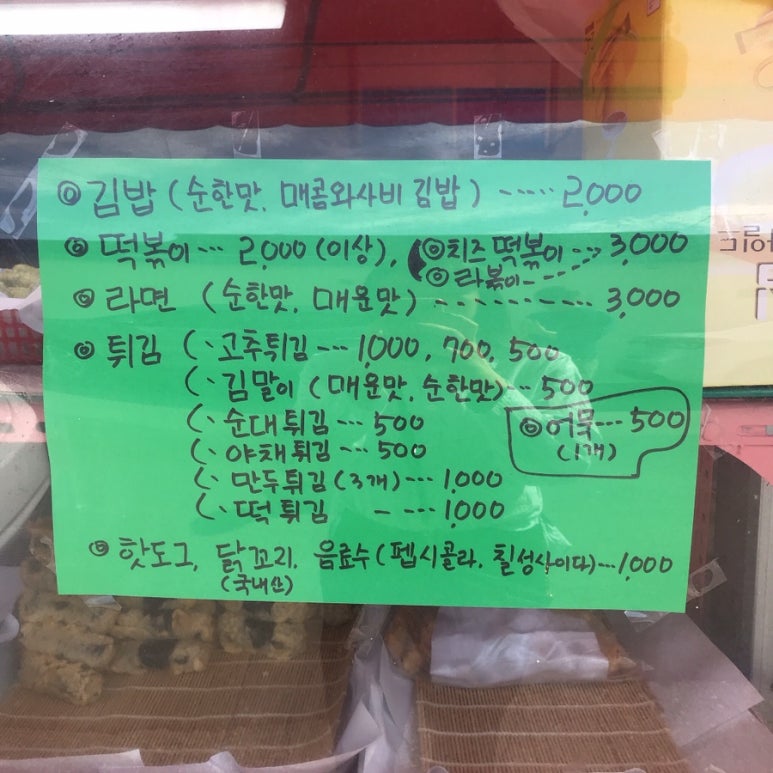 ◎ 김밥 (순한맛, 매콤와사비 김밥) ------ 2,000
◎ 떡볶이 --- 2,000 (이상), (◎ 치즈 떡볶이 --- 3,000
◎ 라볶이 -----
◎ 라면 (순한맛, 매운맛) ----------- 3,000
◎ 튀김 (· 고추튀김 --- 1,000, 700, 500
(· 김말이 (매운맛, 순한맛) --- 500
(· 순대튀김 --- 500
◎ 어묵 --- 500
(1개)
(· 야채튀김 --- 500
(· 만두튀김 (3개) --- 1,000
(· 떡 튀김 ---- 1,000
◎ 핫도그, 닭꼬리, 음료수 (펩시콜라, 칠성사이다) --- 1,000
(국내산)